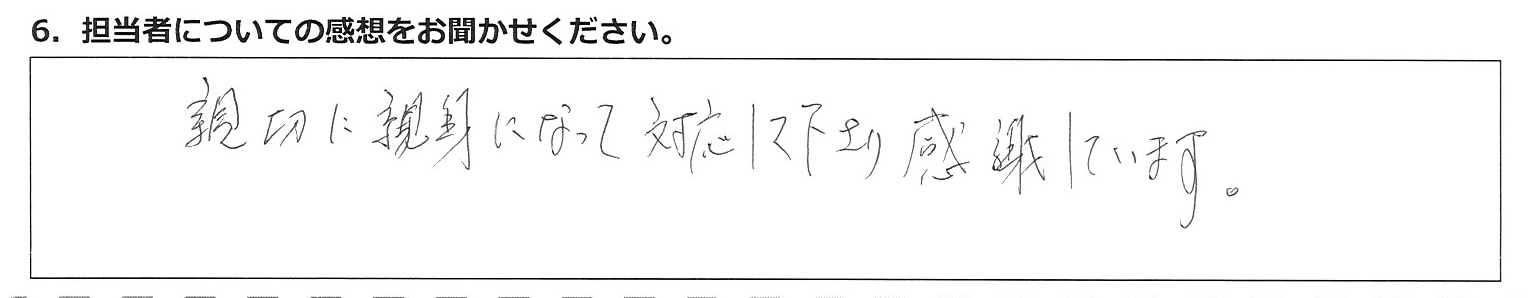 6. 担当者についての感想をお聞かせください。
親切に親身になって対応して下さり感謝しています。